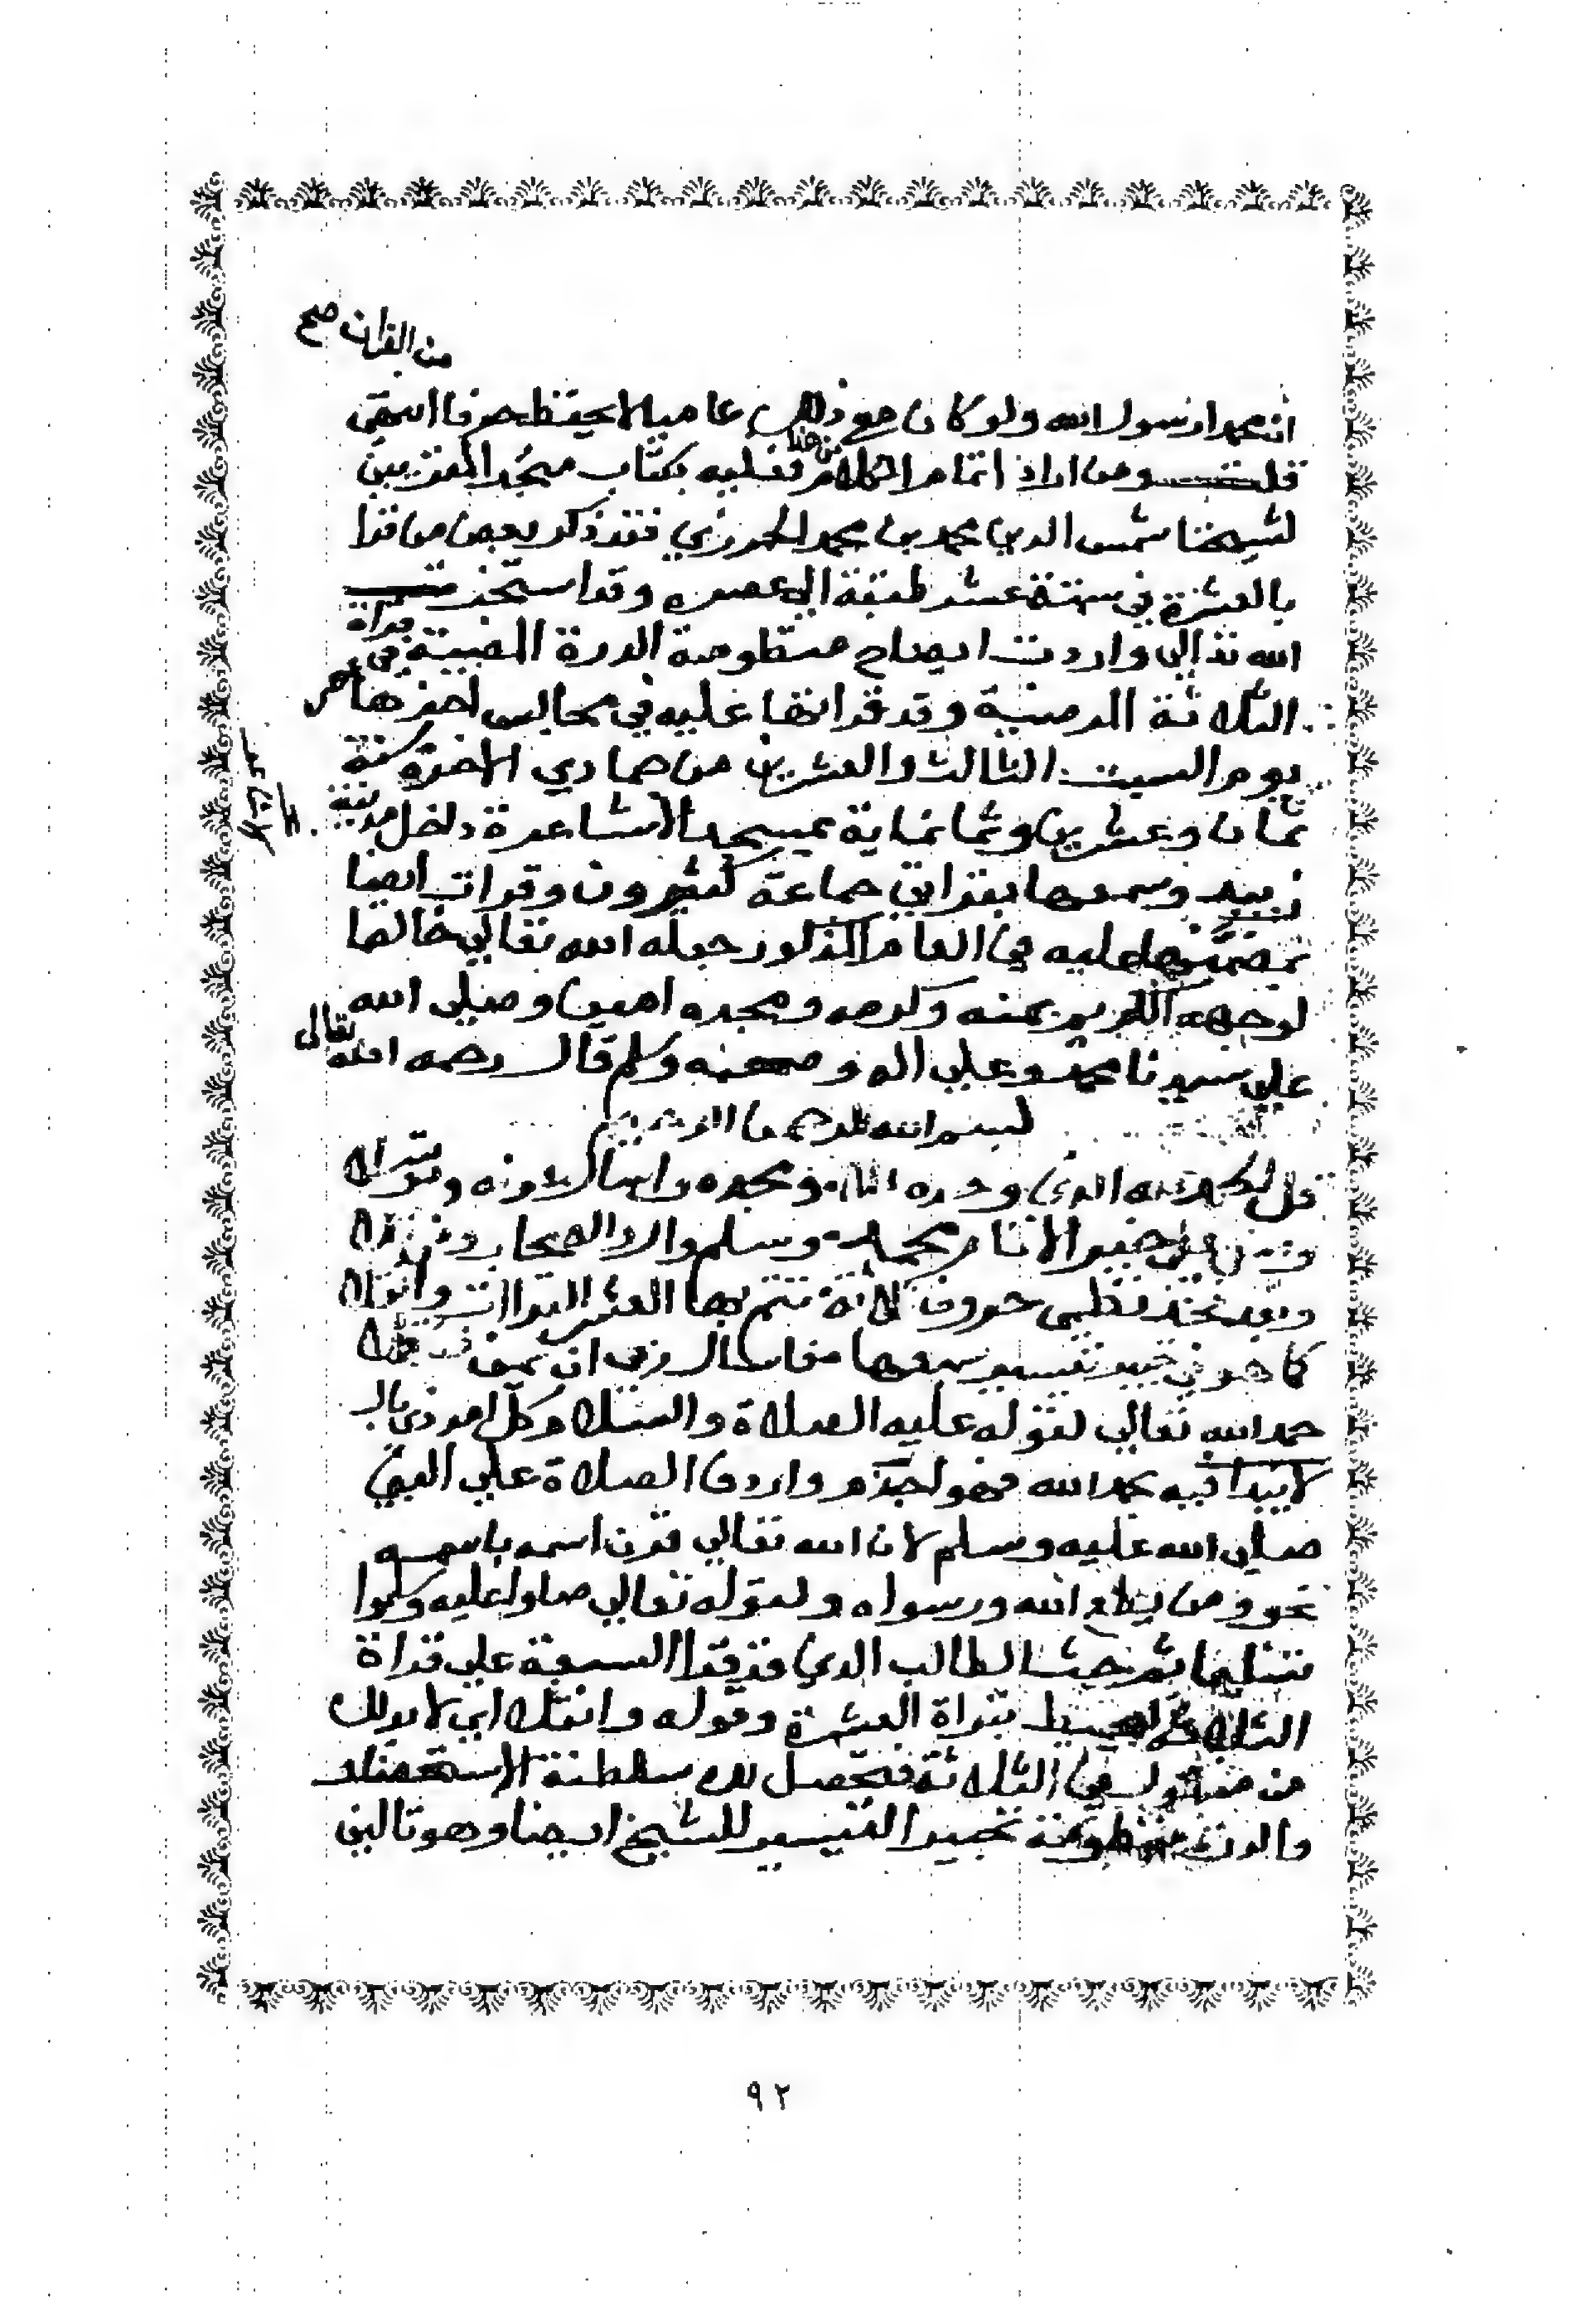 من القران صح
ان محمدا رسول الله ولو كان مع ذلك عاميا لا يحفظ حرفا انتهى
قلت ومن اراد اتمام الكلام من هذا فعليه بكتاب منجد المقريين
لشيخنا شمس الدين محمد بن محمد الجزري فقد ذكر بعض من قرا
بالعشرة في ستة عشر طبقة الى عصره وقد استخرت
الله تعالى واردت ايضاح منظومة الدرة المضية في قراة
الثلاثة المرضية وقد قراتها عليه في مجالس اخرها
يوم السبت الثالث والعشرين من جمادي الاخرة سنة
ثمان وعشرين وثمانماية بمسجد الاشاعرة داخل مدينة
زبيد وسمعها بقراتي جماعة كثيرون وقرات ايضا
عليه في العام المذكور جعله الله تعالى خالصا
لوجهه الكريم بمنه وكرمه ومجده امين وصلى الله
على سيدنا محمد وعلى اله وصحبه وسلم قال رحمه الله تعالى
بسم الله الرحمن الرحيم
قل الحمد لله الذي وحده علا ومجده واسال عونه وتوسلا
وصل على خير الانام محمد وسلم وال والصحاب ومن تلا
وبعد فخذ نظمي حروف ثلاثة تتم بها العشر القراات وانقلا
كما هو في تحبير تيسير سبعها فاسال ربي ان يمن فتكملا
حمد الله تعالى لقوله عليه الصلاة والسلام كل امر ذي بال
لا يبدا فيه بحمد الله فهو اجذم واردف الصلاة على النبي
صلى الله عليه وسلم لان الله تعالى قرن اسمه باسمه
نحو ومن يطع الله ورسوله ولقوله تعالى صلوا عليه وسلموا
تسليما ثم حث الطالب الذي قد قرا السبعة على قراة
الثلاثة ليحيط بقراة العشرة وقوله وانقلا اي لا بد لك
من منقول في الثلاثة فيحصل لك سلطنة الاستحضار
والذي منظومة تحبير التيسير للشيخ ايضا وهو تاليف
٩٢